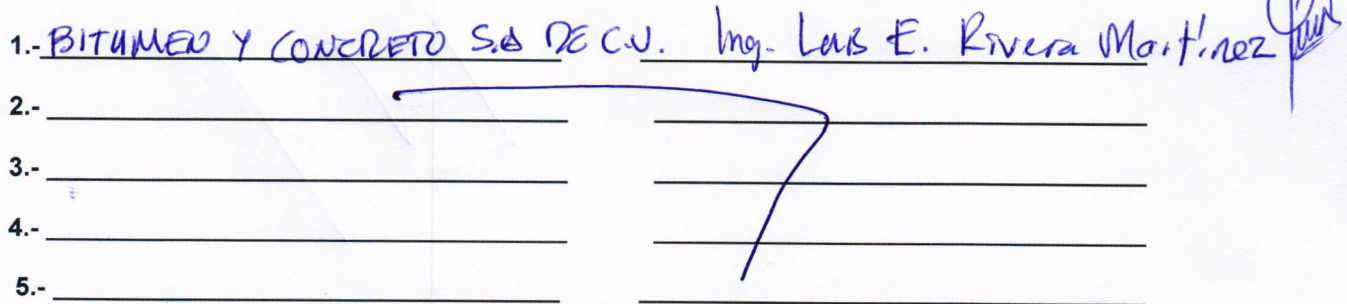 1.- BITUMEN Y CONCRETO S.A DE C.V. Ing. Luis E. Rivera Martínez
2.-
3.-
4.-
5.-